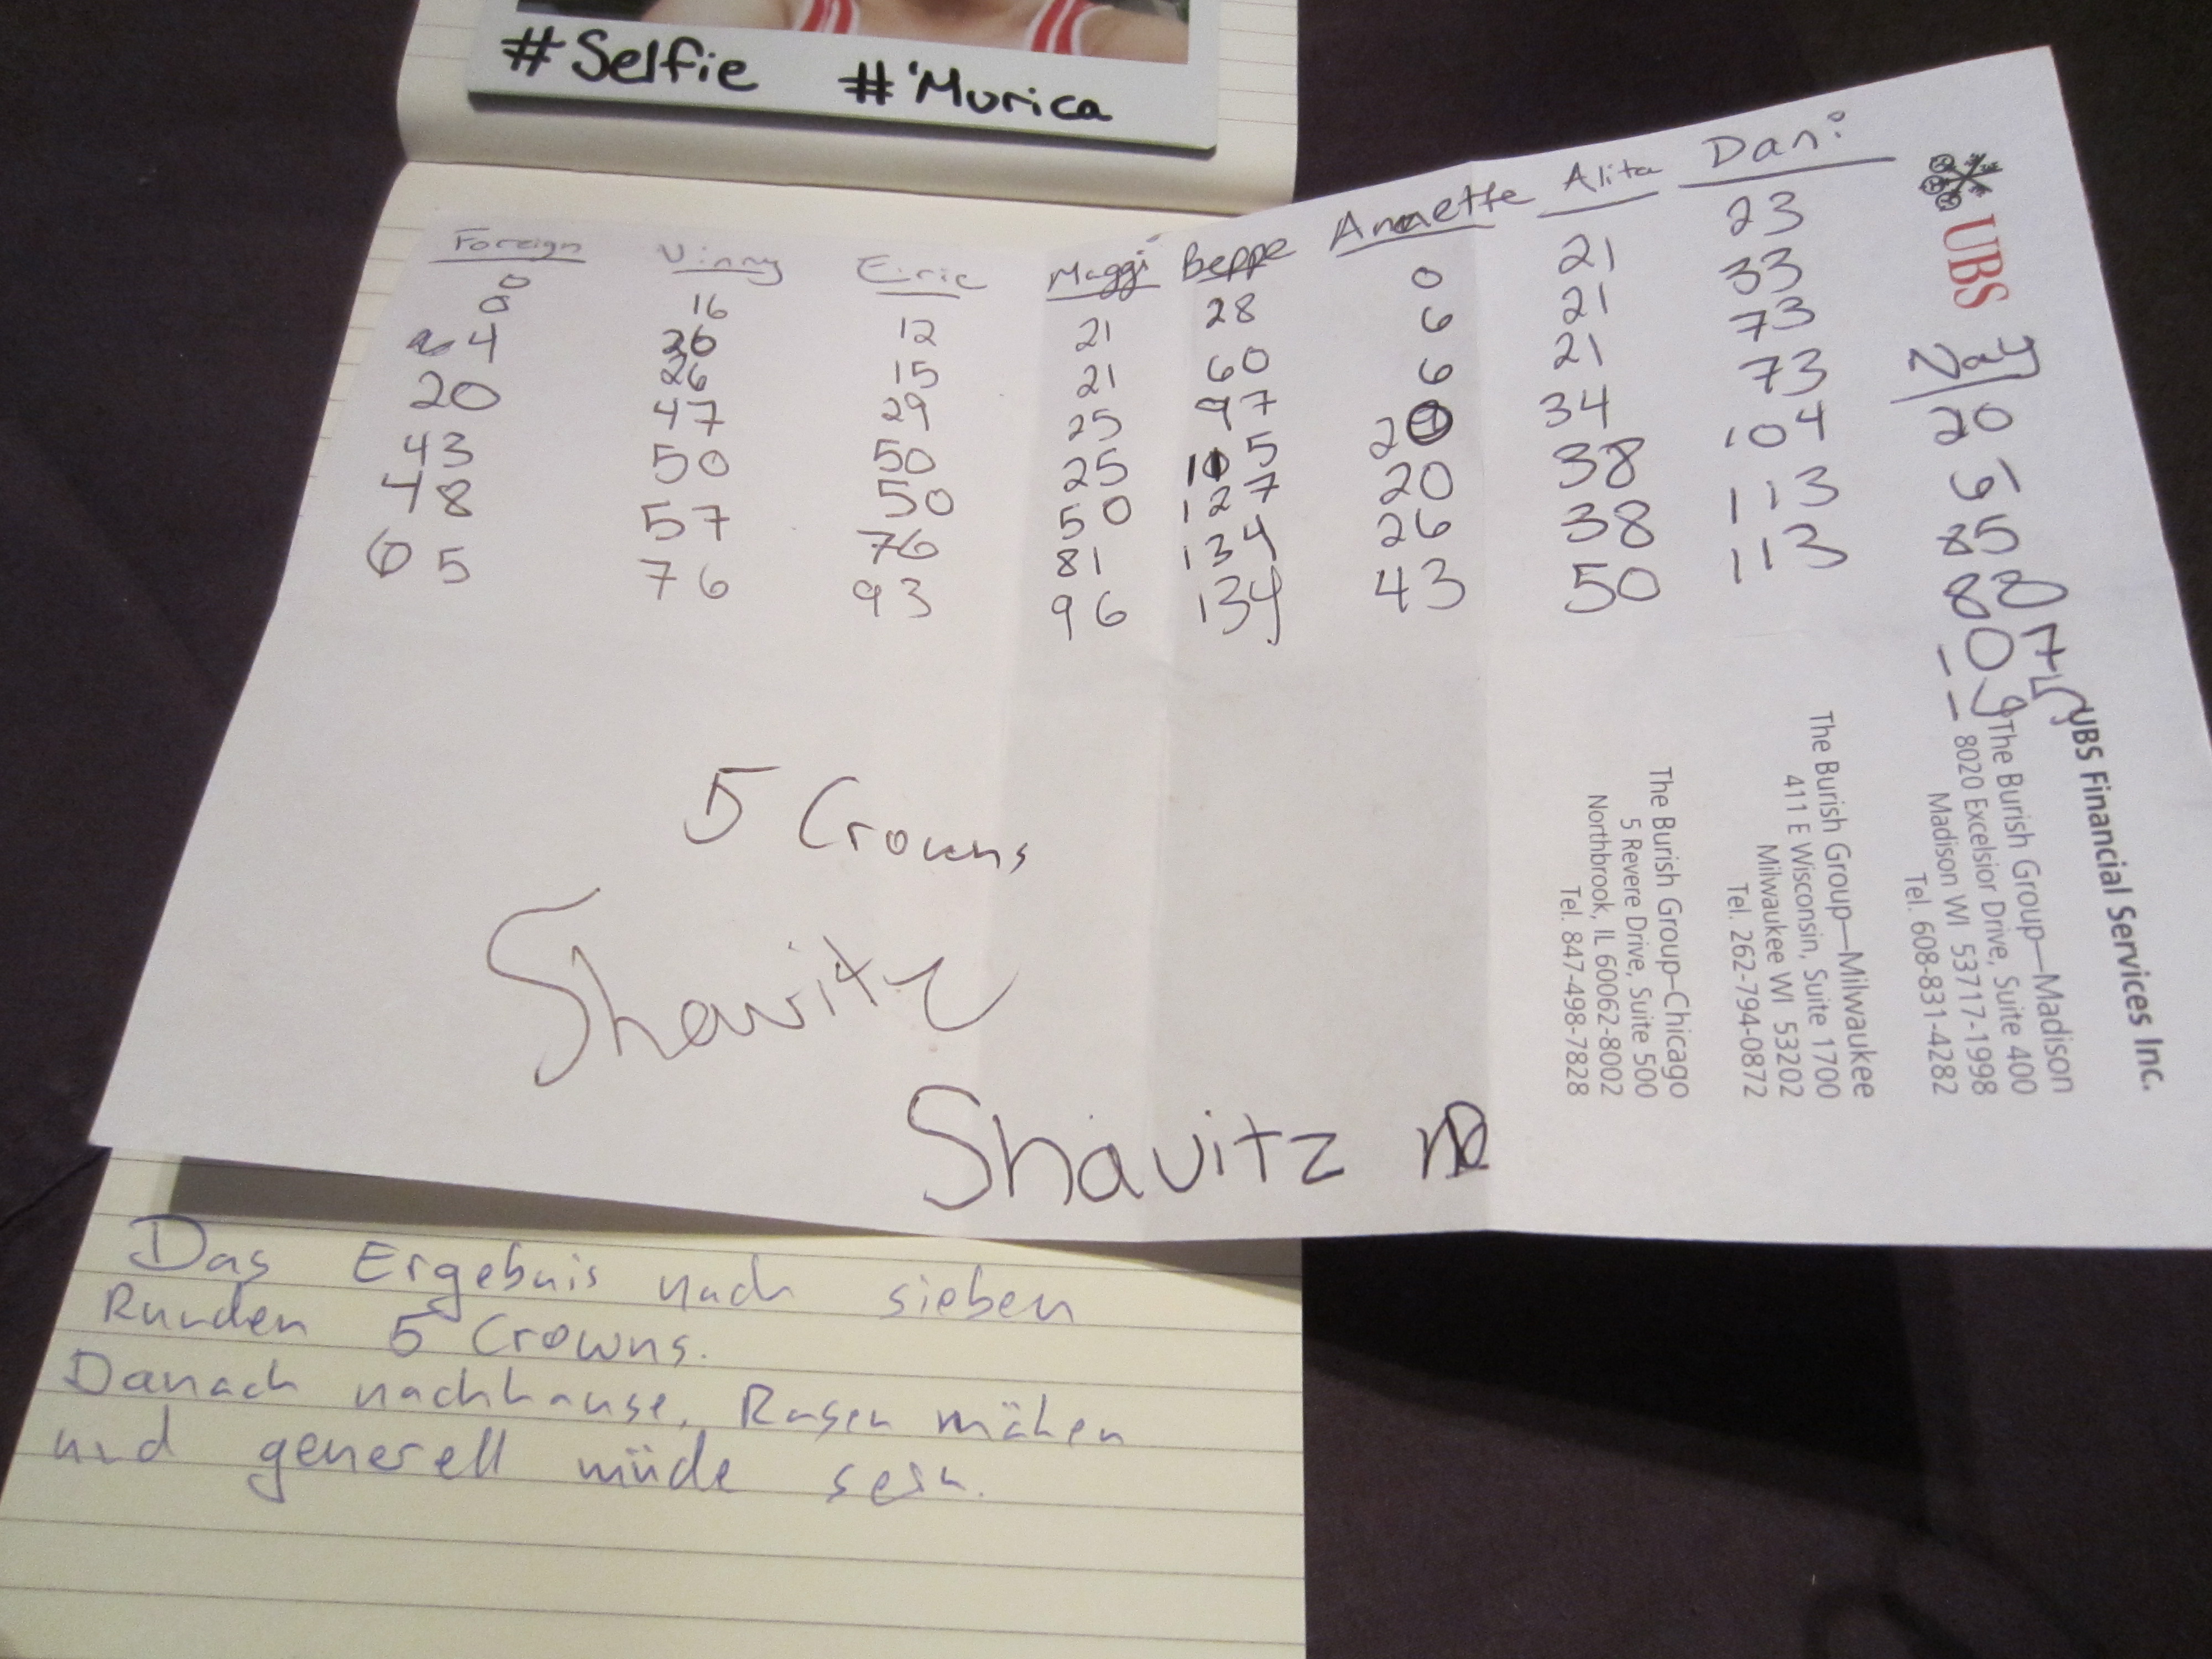 #Selfie #'Murica
Foreign Vinny Eiric Maggi Beppe Annette Alita Dani
0 16 12 21 28 0 21 23
0 26 15 21 60 6 21 33
4 26 29 25 97 6 21 73
20 47 50 25 105 20 34 73
43 50 50 50 127 20 38 104
48 57 76 81 134 26 38 113
65 76 93 96 134 43 50 113
5 Crowns
Shavitz
Shavitz
UBS
UBS Financial Services Inc.
The Burish Group—Madison
8020 Excelsior Drive, Suite 400
Madison WI 53717-1998
Tel. 608-831-4282
The Burish Group—Milwaukee
411 E Wisconsin, Suite 1700
Milwaukee WI 53202
Tel. 262-794-0872
The Burish Group–Chicago
5 Revere Drive, Suite 500
Northbrook, IL 60062-8002
Tel. 847-498-7828
Das Ergebnis nach sieben
Runden 5 Crowns.
Danach nachhause, Rasen mähen
und generell müde sein.